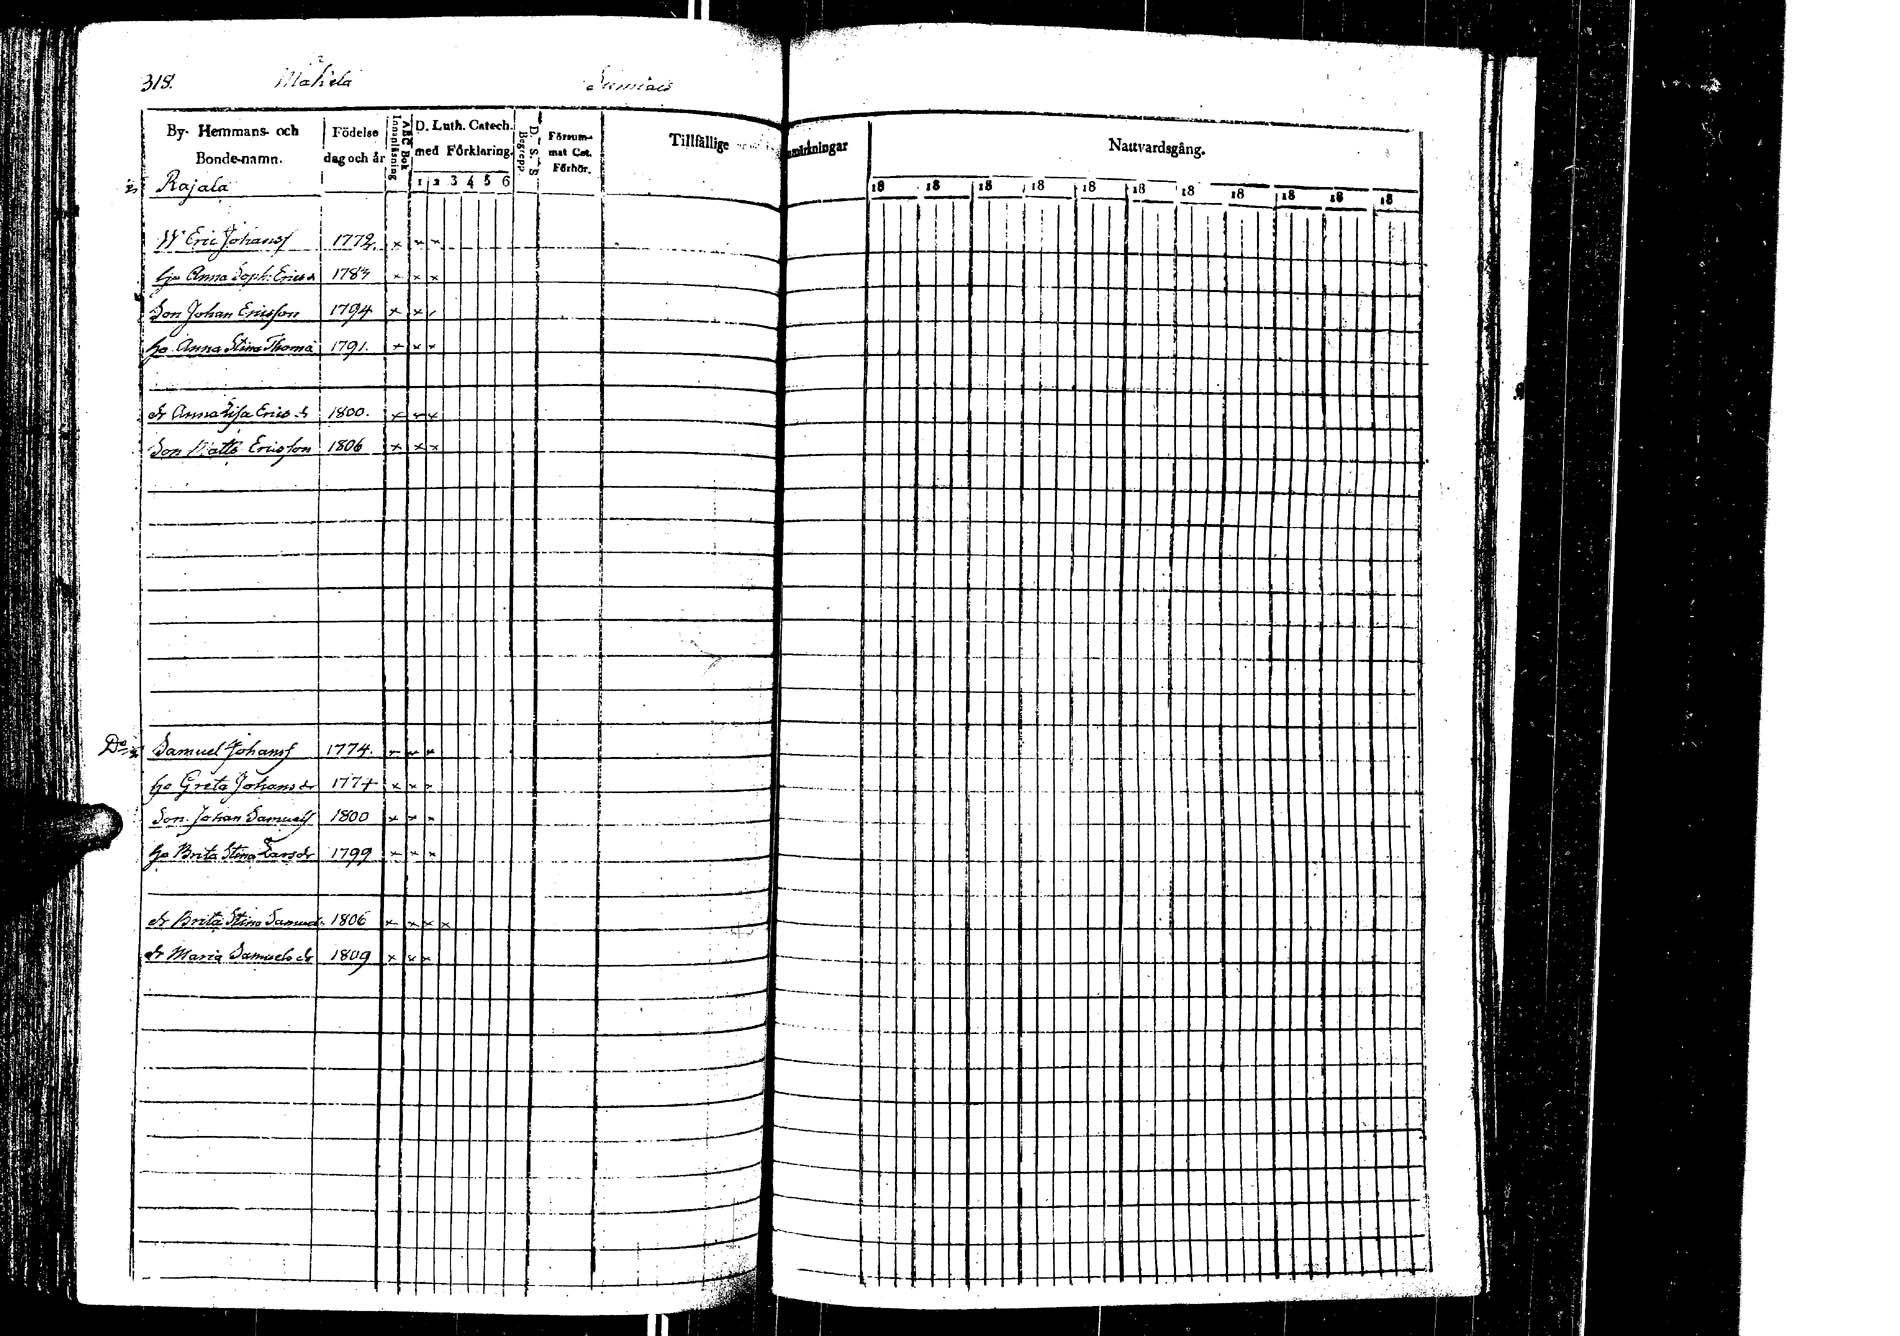 318. Mahila Sumiais
By- Hemmans- och Bonde-namn.
Födelse dag och år
ABC Bok Innanläsning
D. Luth. Catech. med Förklaring.
1 2 3 4 5 6
D. S. S Begrepp
Försum- mat Cat. Förhör.
Tillfällige anmärkningar
Nattvardsgång.
18 18 18 18 18 18 18 18 18 18 18
Rajala
Eric Johansf 1772. x x x
Anna Soph. Erics dr 1783 x x x
Son Johan Ericsson 1794 x x
Anna Stina Thoma 1791. x x x
dr Anna Lisa Erics dr 1800. x x x
Son Matts Ericsson 1806 x x x
Do Samuel Johansf 1774. x x x
Greta Johans dr 1774 x x x
Son. Johan Samuelf 1800 x x x
Brita Stina Lars dr 1799 x x x
dr Brita Stina Samuels 1806 x x x x
dr Maria Samuels dr 1809 x x x